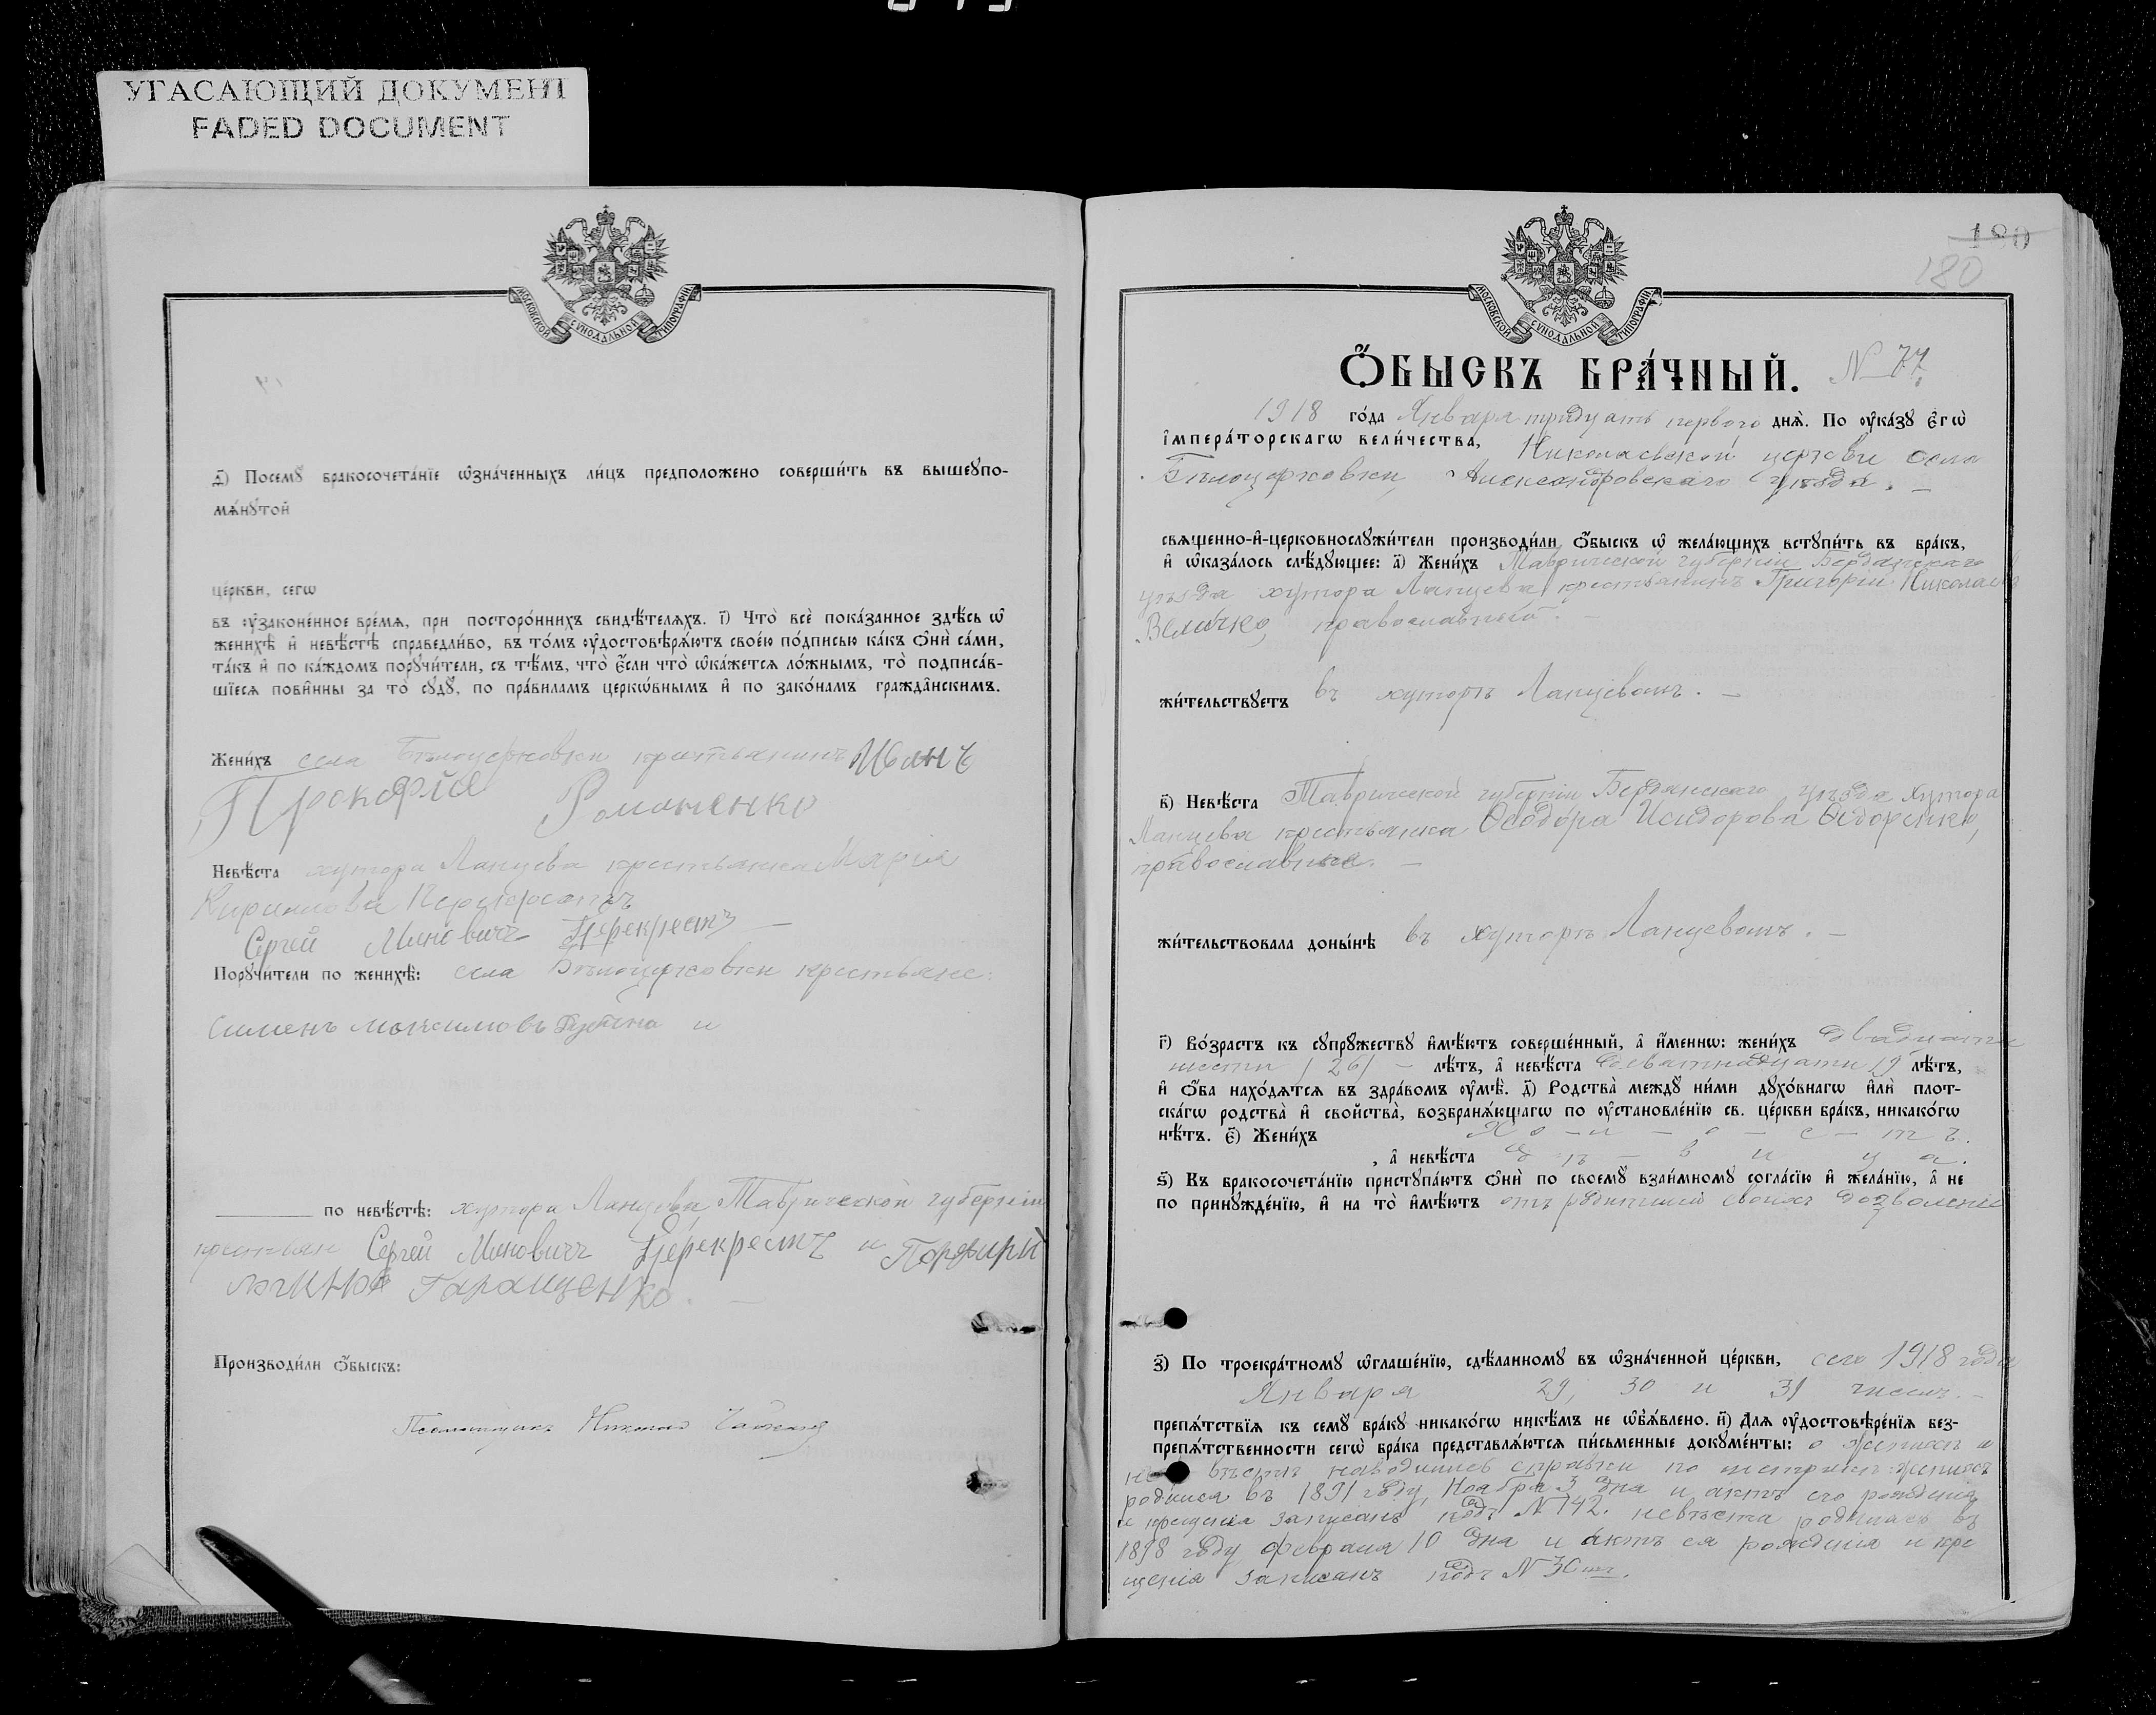 УГАСАЮЩИЙ ДОКУМЕНТ
FADED DOCUMENT
МОСКОВСКОЙ СѴНОДАЛЬНОЙ ТИПОГРАФІИ
д҃) Посемꙋ бракосочета́нїе ѡ҆зна́ченныхъ ли́цъ предположено соверши́ть въ вышеꙋпо-
мѧ́нꙋтой
це́ркви, сегѡ
въ ᲂу҆зако́ненное вре́мѧ, при посторо́ннихъ свидѣ́телѧхъ. і҃) Что̀ всѐ пока́занное здѣ́сь ѡ҆
женихѣ̀ и҆ невѣ́стѣ справедли́во, въ то́мъ ᲂу҆достовѣрѧ́ютъ свое́ю по́дписью ка́къ ѻ҆нѝ са́ми,
та́къ и҆ по ка́ждомъ порꙋчи́тели, съ тѣ́мъ, что̀ є҆́сли что̀ ѡ҆ка́жетсѧ ло́жнымъ, то̀ подписа́в-
шїесѧ пови́нны за то̀ сꙋдꙋ̀, по пра́виламъ церкѡ́внымъ и҆ по зако́намъ гражда́нскимъ.
Жени́хъ села Бѣлоцерковки крестьянинъ Иванъ
Прокофіе Романенко
Невѣ́ста хутора Ланцева крестьянка Марія
Кирилова Перекрестъ
Сергей Минович Перекрестъ
Порꙋчи́тели по женихѣ̀: села Бѣлоцерковки крестьяне:
Сименъ Максимовъ и
по невѣ́стѣ: хутора Ланцева Таврической губерніи
крестьян Сергей Минович Перекрестъ и Порфирій
Гаращенко.
Производи́ли ѻ҆́быскъ:
Псаломщикъ Николай
МОСКОВСКОЙ СѴНОДАЛЬНОЙ ТИПОГРАФІИ
180
180
Ѻ҆́БЫСКЪ БРА́ЧНЫЙ. N 77.
1918 го́да Января тридцать первого днѧ̀. По ᲂу҆ка́зꙋ є҆гѡ̀
і҆мпера́торскагѡ вели́чества, Николаевской церкви села
Бѣлоцерковки, Александровскаго уѣзда. —
свѧще́нно-и҆-церковнослꙋжи́тели производи́ли ѻ҆́быскъ ѡ҆ жела́ющихъ встꙋпи́ть въ бра́къ,
и҆ ѡ҆каза́лось слѣ́дꙋющее: а҃) Жени́хъ Таврической губерніи Бердянскаго
уѣзда хутора Ланцева крестьянинъ Григорій Николаевъ
Величко, православный. —
жи́тельствꙋетъ въ хуторѣ Ланцевомъ. —
в҃) Невѣ́ста Таврической губерніи Бердянскаго уѣзда Хутора
Ланцева крестьянка Ѳеодора Исидорова Ѳедоренко,
православная. —
жи́тельствовала доны́нѣ въ хуторѣ Ланцевомъ. —
г҃) Во́зрастъ къ сꙋпрꙋ́жествꙋ и҆мѣ́ютъ соверше́нный, а҆ и҆́меннѡ: жени́хъ двадцати
шести /26/ — лѣ́тъ, а҆ невѣ́ста девятнадцати 19 лѣ́тъ,
и҆ ѻ҆́ба нахо́дѧтсѧ въ здра́вомъ ᲂу҆мѣ̀. д҃) Родства̀ междꙋ̀ ни́ми дꙋхо́внагѡ и҆лѝ плот-
ска́гѡ родства̀ и҆ сво́йства̀, возбранѧ́ющагѡ по ᲂу҆становле́нїю св. це́ркви бра́къ, никако́гѡ
нѣ́тъ. є҃) Жени́хъ Х о – л – о – с – т ъ.
, а҆ невѣ́ста д ѣ – в и ц а.
ѕ҃) Къ бракосочета́нїю пристꙋпа́ютъ ѻ҆нѝ по своемꙋ̀ взаи́мномꙋ согла́сїю и҆ жела́нїю, а҆ не
по принꙋжде́нїю, и҆ на то̀ и҆мѣ́ютъ отъ родителей своихъ дозволеніе
з҃) По троекра́тномꙋ ѡ҆глаше́нїю, сдѣ́ланномꙋ въ ѡ҆зна́ченной це́ркви, сего 1918 года
Января 29, 30 и 31 чиселъ. —
препѧ́тствїѧ къ семꙋ̀ бра́кꙋ никако́гѡ никѣ́мъ не ѡ҆б̾ѧ́влено. и҃) Длѧ ᲂу҆достовѣре́нїѧ без-
препѧ́тственности сегѡ̀ бра́ка представлѧ́ютсѧ пи́сьменные докꙋме́нты: о женихѣ и
невѣстѣ наводились справки по метрикѣ: женихъ
родился въ 1891 году, Ноября 3 дня и актъ его рожденія
и крещенія записанъ подъ N 142. невѣста родилась въ
1898 году февраля 10 дня и актъ ея рожденія и кре
щенія записанъ подъ N 30